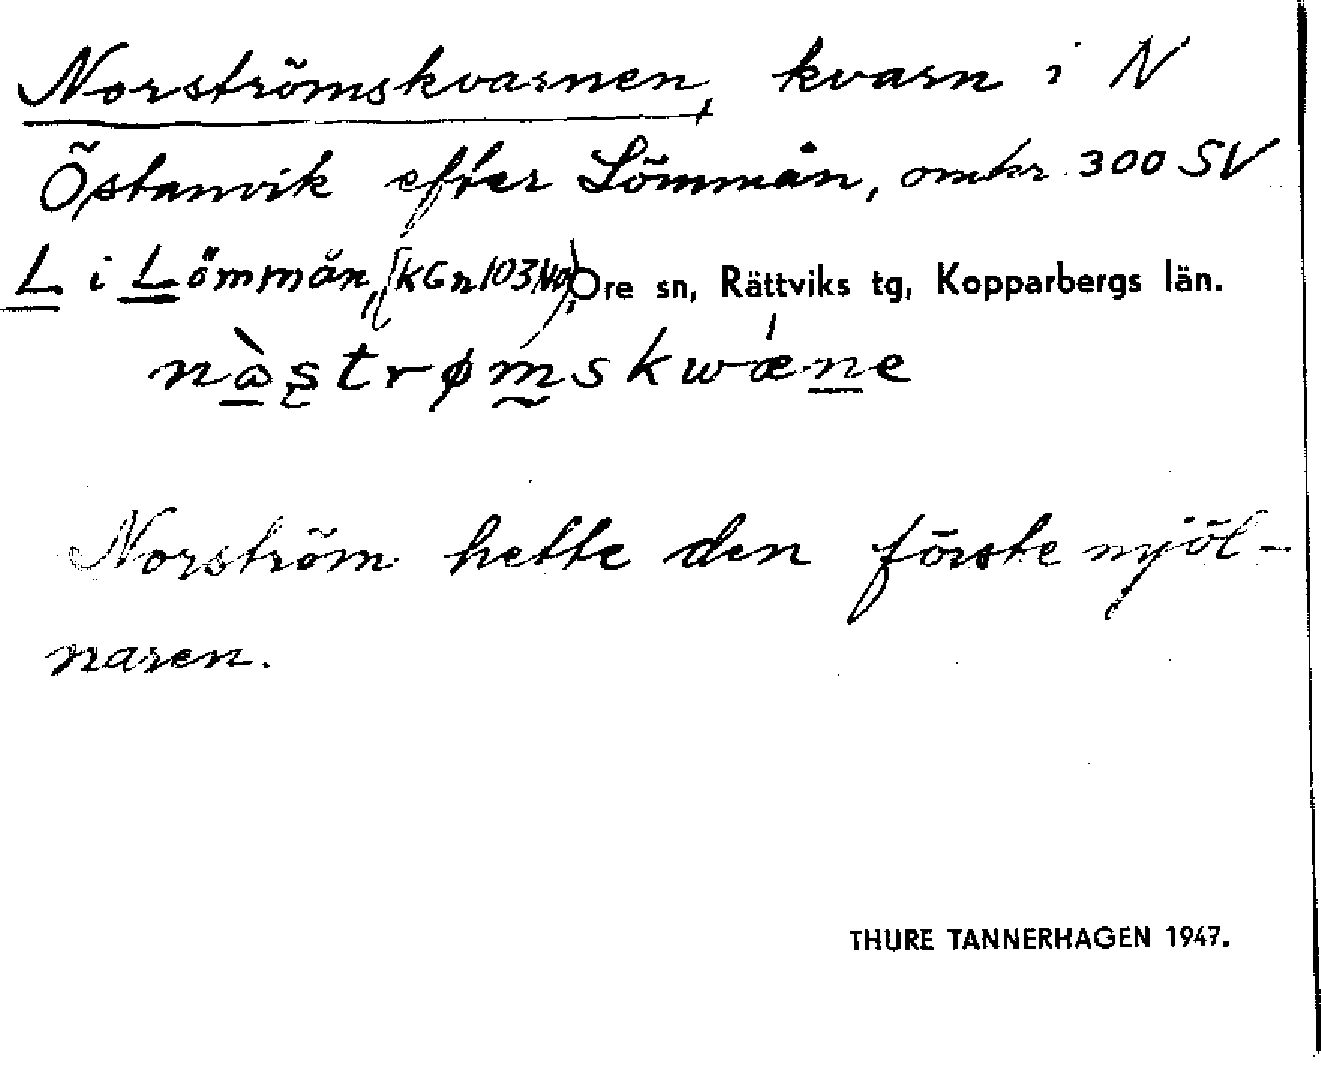 Norströmskvarnen, kvarn i N
Östanvik efter Lömmån, omkr 300 SV
L i Lömmån, (KGn103No), Ore sn, Rättviks tg, Kopparbergs län.
nàstrømskwǽne
Norström hette den förste mjöl-
naren.
THURE TANNERHAGEN 1947.